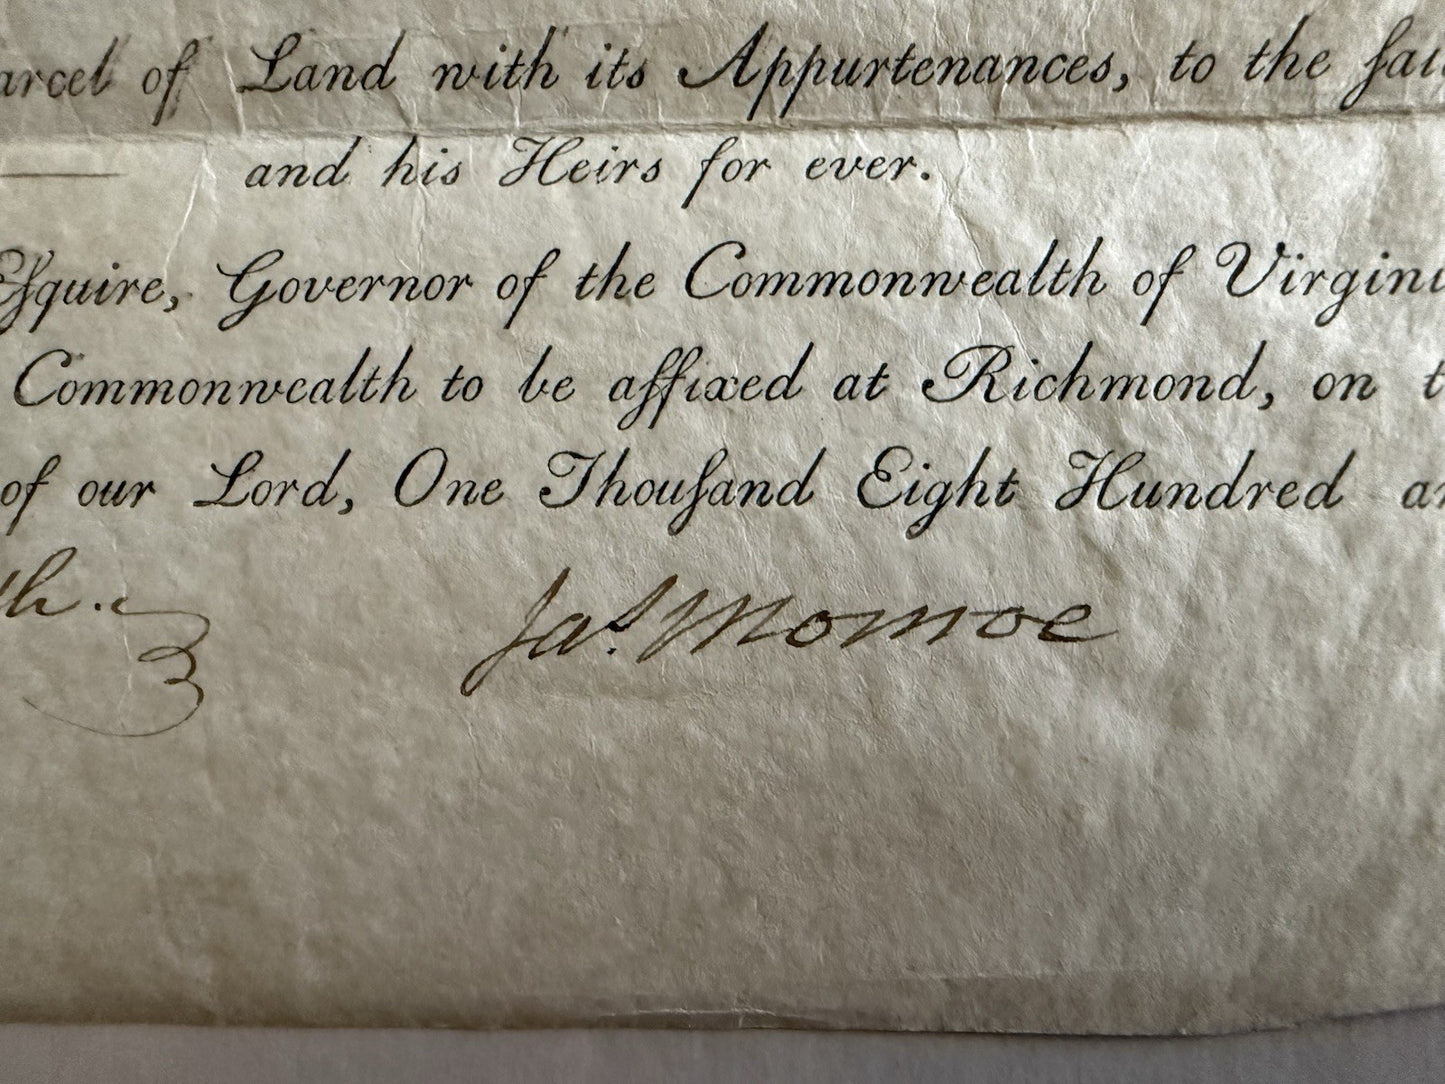 arcel of Land with its Appurtenances, to the ſai
and his Heirs for ever.
Eſquire, Governor of the Commonwealth of Virgini
Commonwealth to be affixed at Richmond, on t
of our Lord, One Thouſand Eight Hundred an
th.
Jas. Monroe